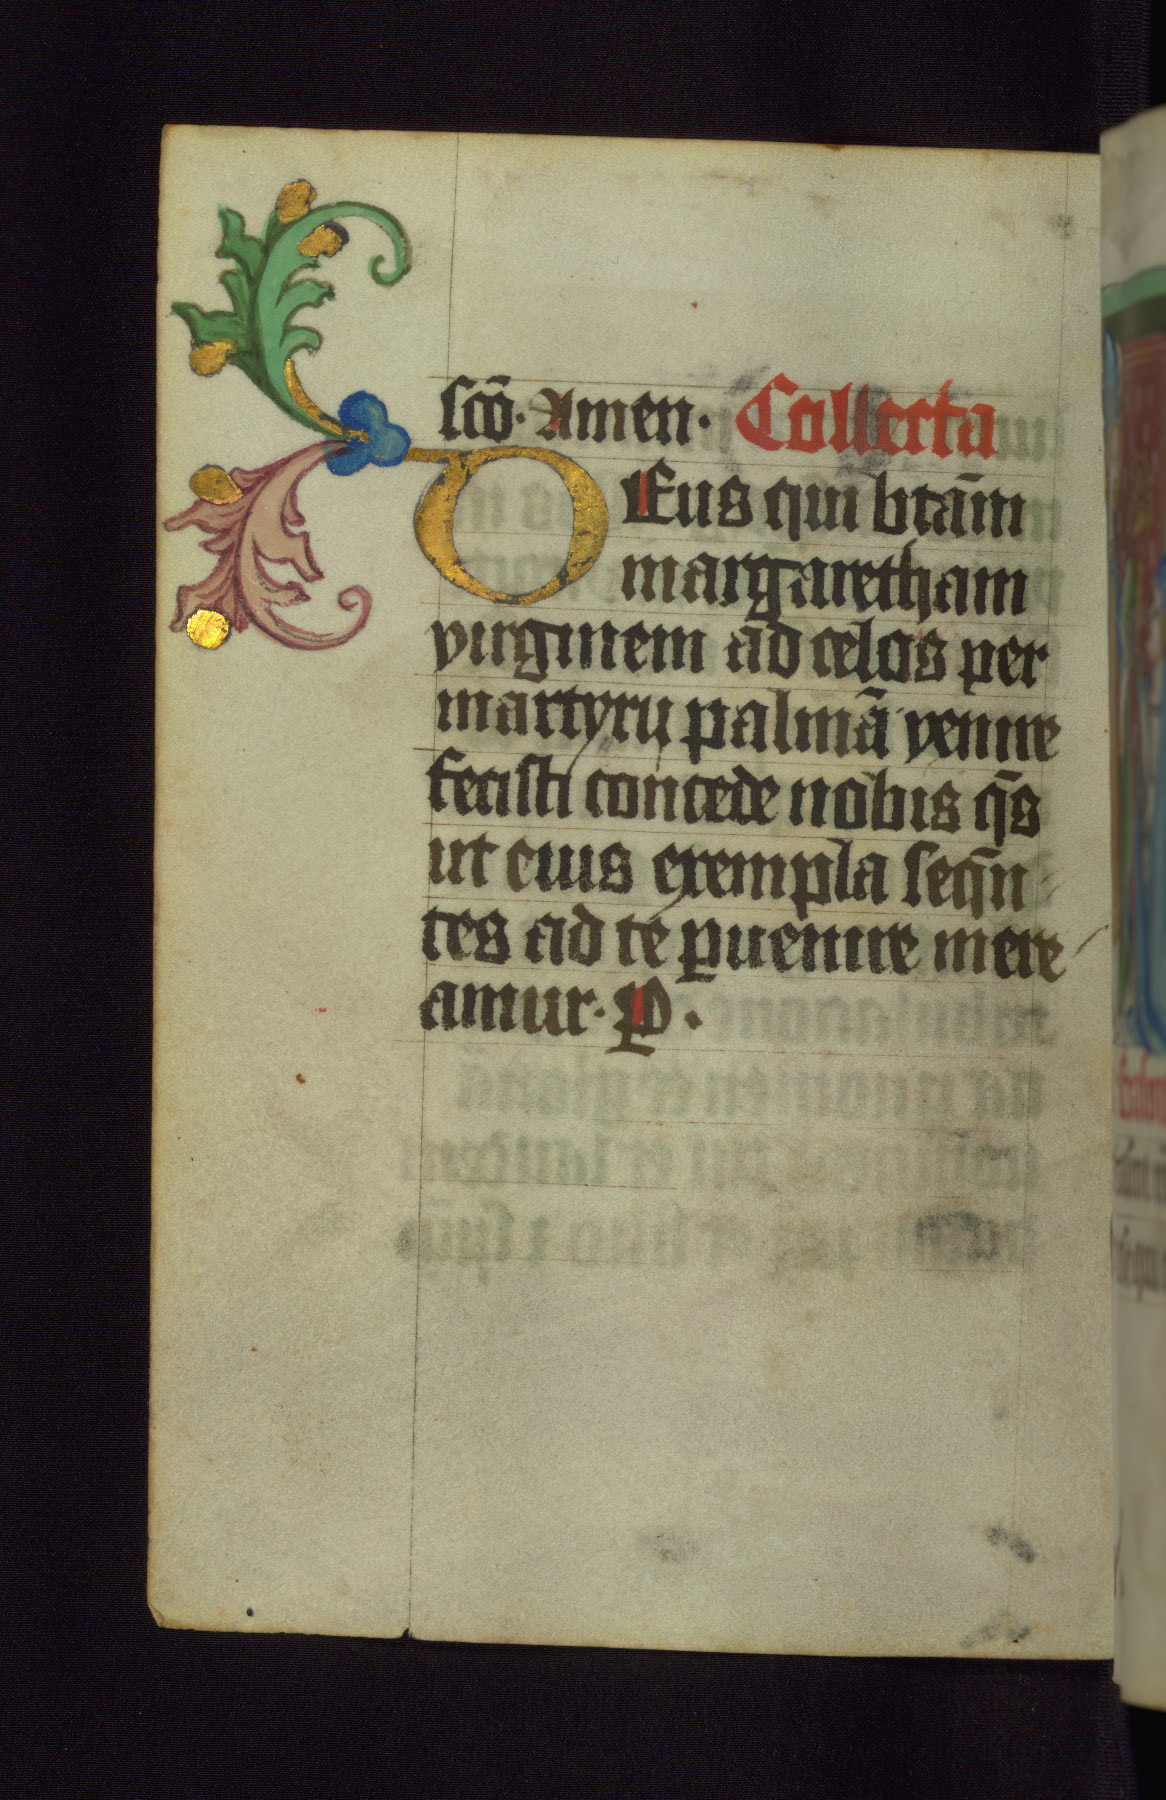 sc̄o. Amen. Collecta
DEus qui btām
margaretham
virginem ad celos per
martyrij palmā venire
fecisti concede nobis q̄s
ut eius exempla seqn̄
tes ad te ꝑuenire mere
amur. P.